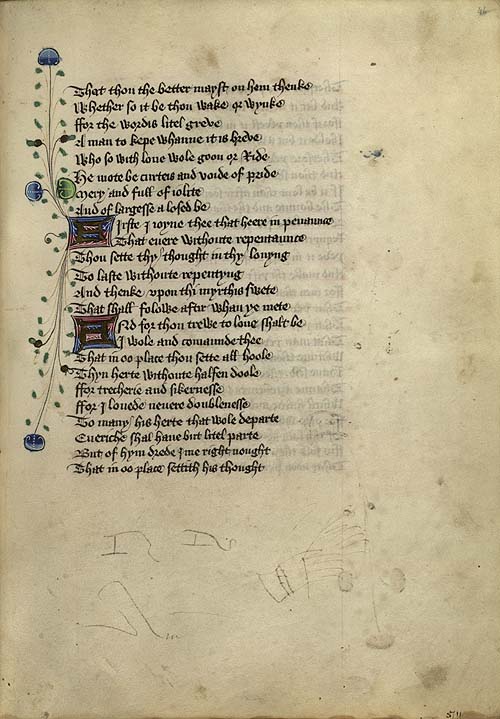 46
That thou the better mayst on hem thenke
Whether so it be thou wake or wynke
ffor the wordis litel greve
A man to kepe whanne it is breve
Who so with loue wole goon or Ride
He mote be curteis and voide of pride
Mery and full of iolite
And of largesse a losed be
Firste I ioyne thee that heere in penaunce
That euere withoute repentaunce
Thou sette thy thought in thy louyng
To laste withoute repentyng
And thenke vpon thi myrthis swete
That shall folowe aftir whan ye mete
And for thou trewe to loue shalt be
I wole and comaunde thee
That in oo place thou sette all hoole
Thyn herte withoute halfen doole
ffor trecherie and sikernesse
ffor I louede neuere doublenesse
To many his herte that wole departe
Eueriche shal haue but litel parte
But of hym drede I me right nought
That in oo place settith his thought